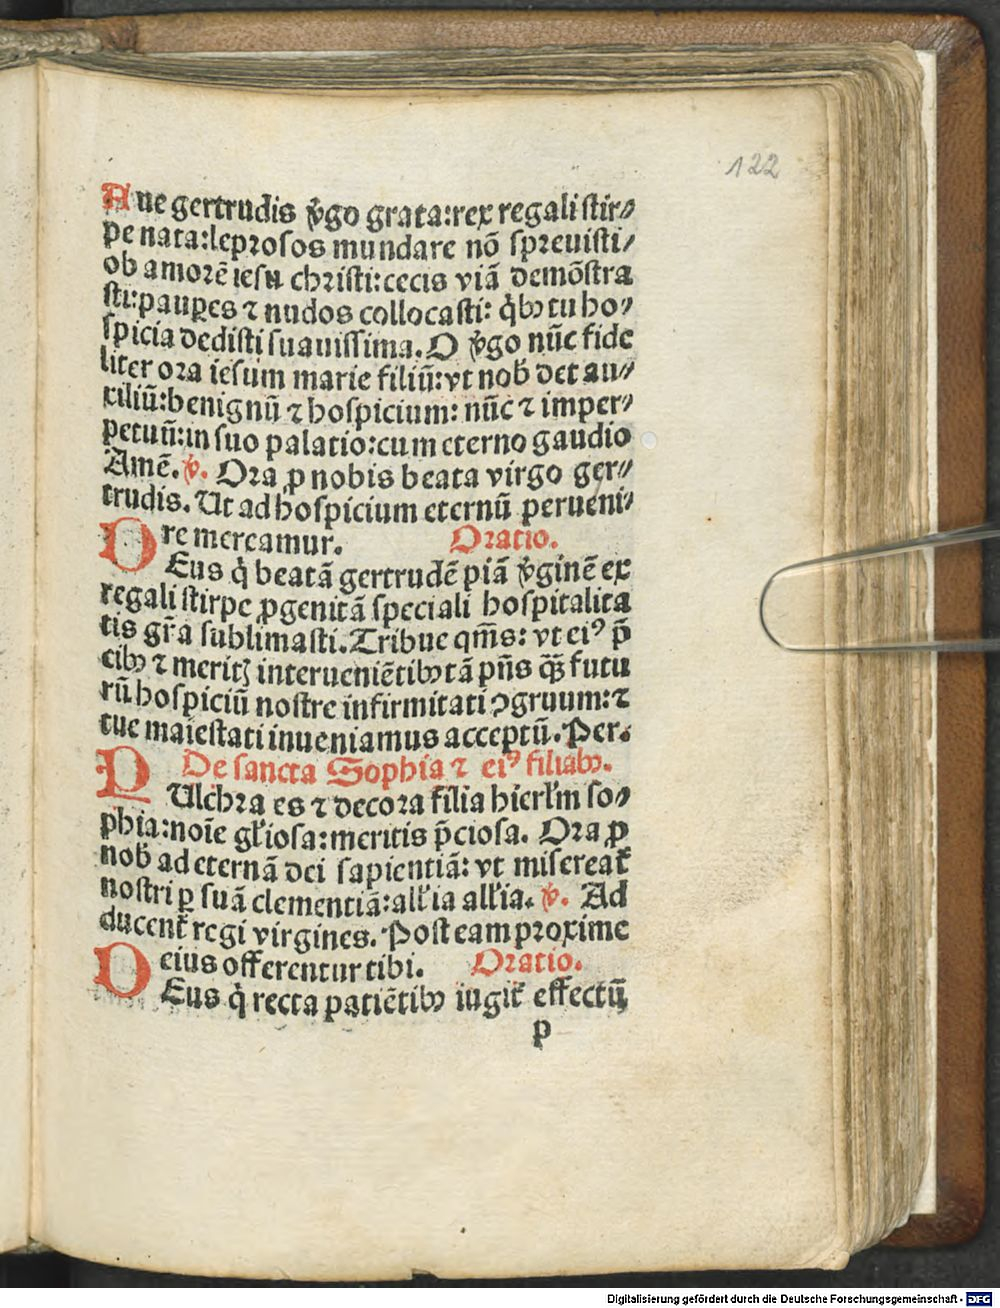 122
Aue gertrudis v̾go grata:rex regali stir⸗
pe nata:leprosos mundare nō spreuisti/
ob amorē iesu christi:cecis viā demōstra
sti:pauꝑes ⁊ nudos collocasti: q̇bꝫ tu ho⸗
spicia dedisti suauissima. O v̾go nūc fide
liter ora iesum marie filiū:vt nob̾ det au⸗
xiliū:benignū ⁊ hospicium: nūc ⁊ imper⸗
petuū:in suo palatio:cum eterno gaudio
Amē. ℣. Ora ꝓ nobis beata virgo ger⸗
trudis. Ut ad hospicium eternū perueni⸗
re mereamur. Oratio.
DEus q̇ beatā gertrudē piā v̾ginē ex
regali stirpe ꝓgenitā speciali hospitalita
tis gr̄a sublimasti. Tribue qm̄s: vt eiꝰ p̄
cibꝫ ⁊ meritꝭ interueniētibꝫ tā pn̄s qꝫ̄ futu
rū hospiciū nostre infirmitati ꝯgruum:⁊
tue maiestati inueniamus acceptū. Per.
De sancta Sophia ⁊ eiꝰ filiabꝫ.
PUlchra es ⁊ decora filia hierl̄m so⸗
phia:noīe gl̄iosa:meritis p̄ciosa. Ora ꝓ
nob̾ ad eternā dei sapientiā: vt misereat̄
nostri ꝑ suā clementiā:all̄ia all̄ia. ℣. Ad
ducent̄ regi virgines. Post eam proxime
eius offerentur tibi. Oratio.
DEus q̇ recta patiētibꝫ iugit̄ effectū
p
Digitalisierung gefördert durch die Deutsche Forschungsgemeinschaft - DFG